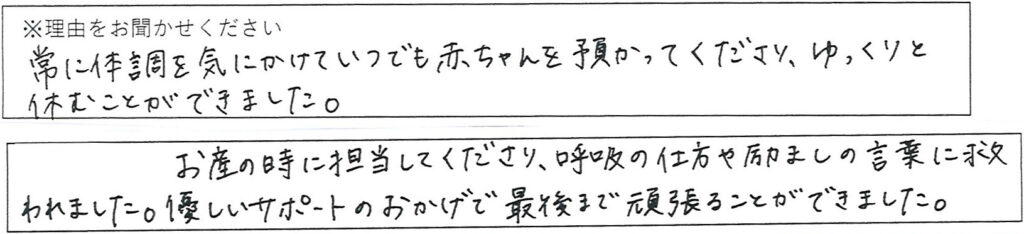 ※理由をお聞かせください
常に体調を気にかけていつでも赤ちゃんを預かってくださり、ゆっくりと
休むことができました。
お産の時に担当してくださり、呼吸の仕方や励ましの言葉に救
われました。優しいサポートのおかげで最後まで頑張ることができました。